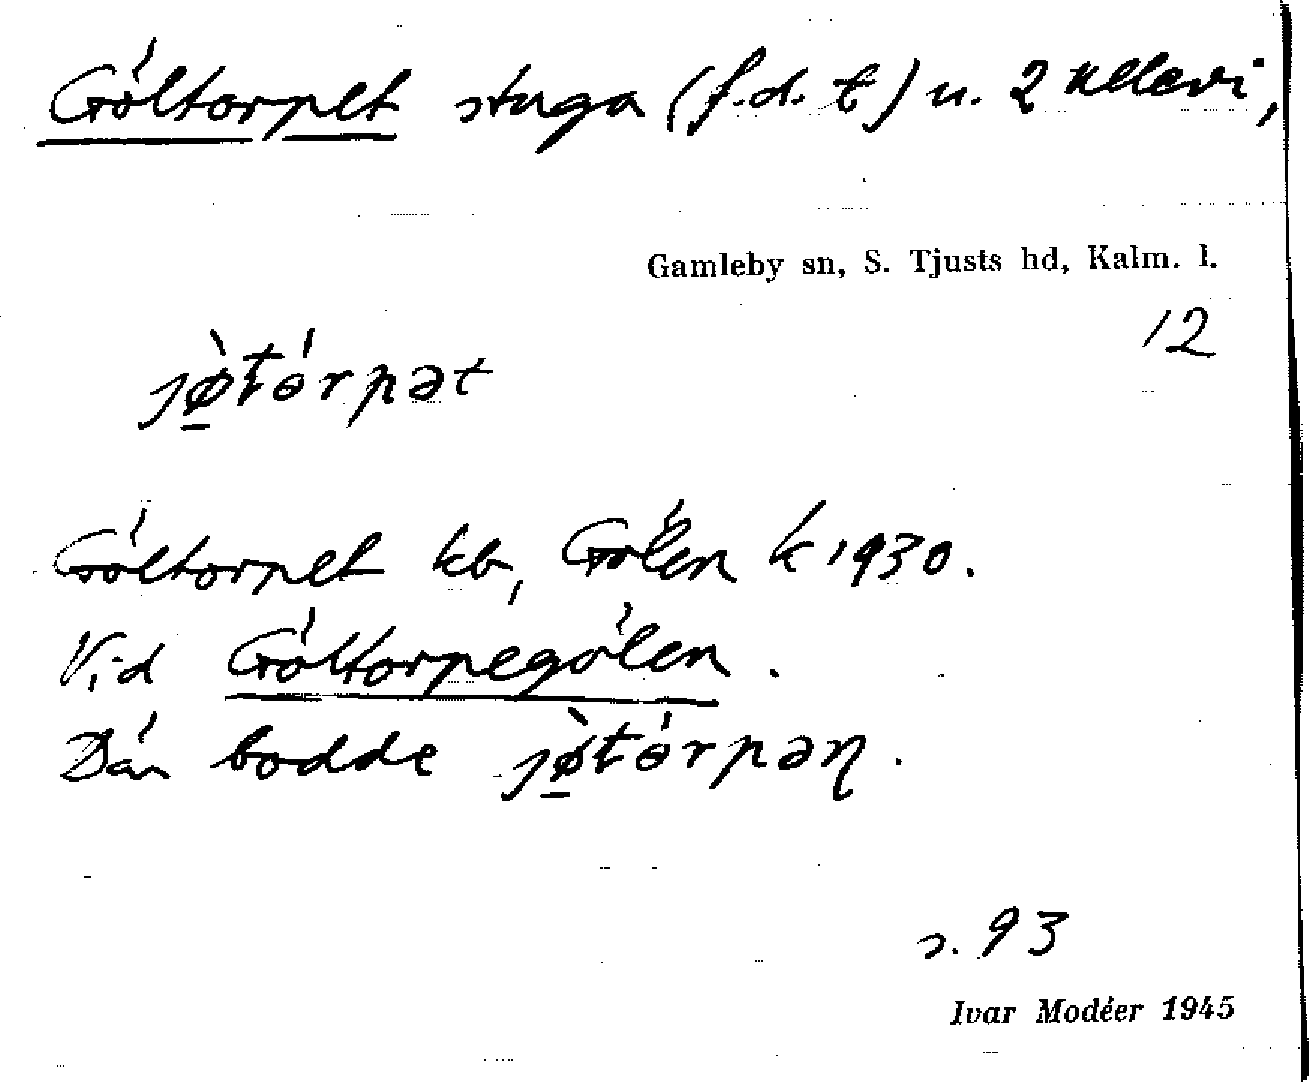 Göltorpet stuga (f.d. t) u. 2 Ullevi,
Gamleby sn, S. Tjusts hd, Kalm. l.
12
jø̀tórpət
Göltorpet kb, Gölen k 1930.
Vid Göltorpegölen.
Där bodde jø̀tórpəŋ.
s. 93
Ivar Modéer 1945